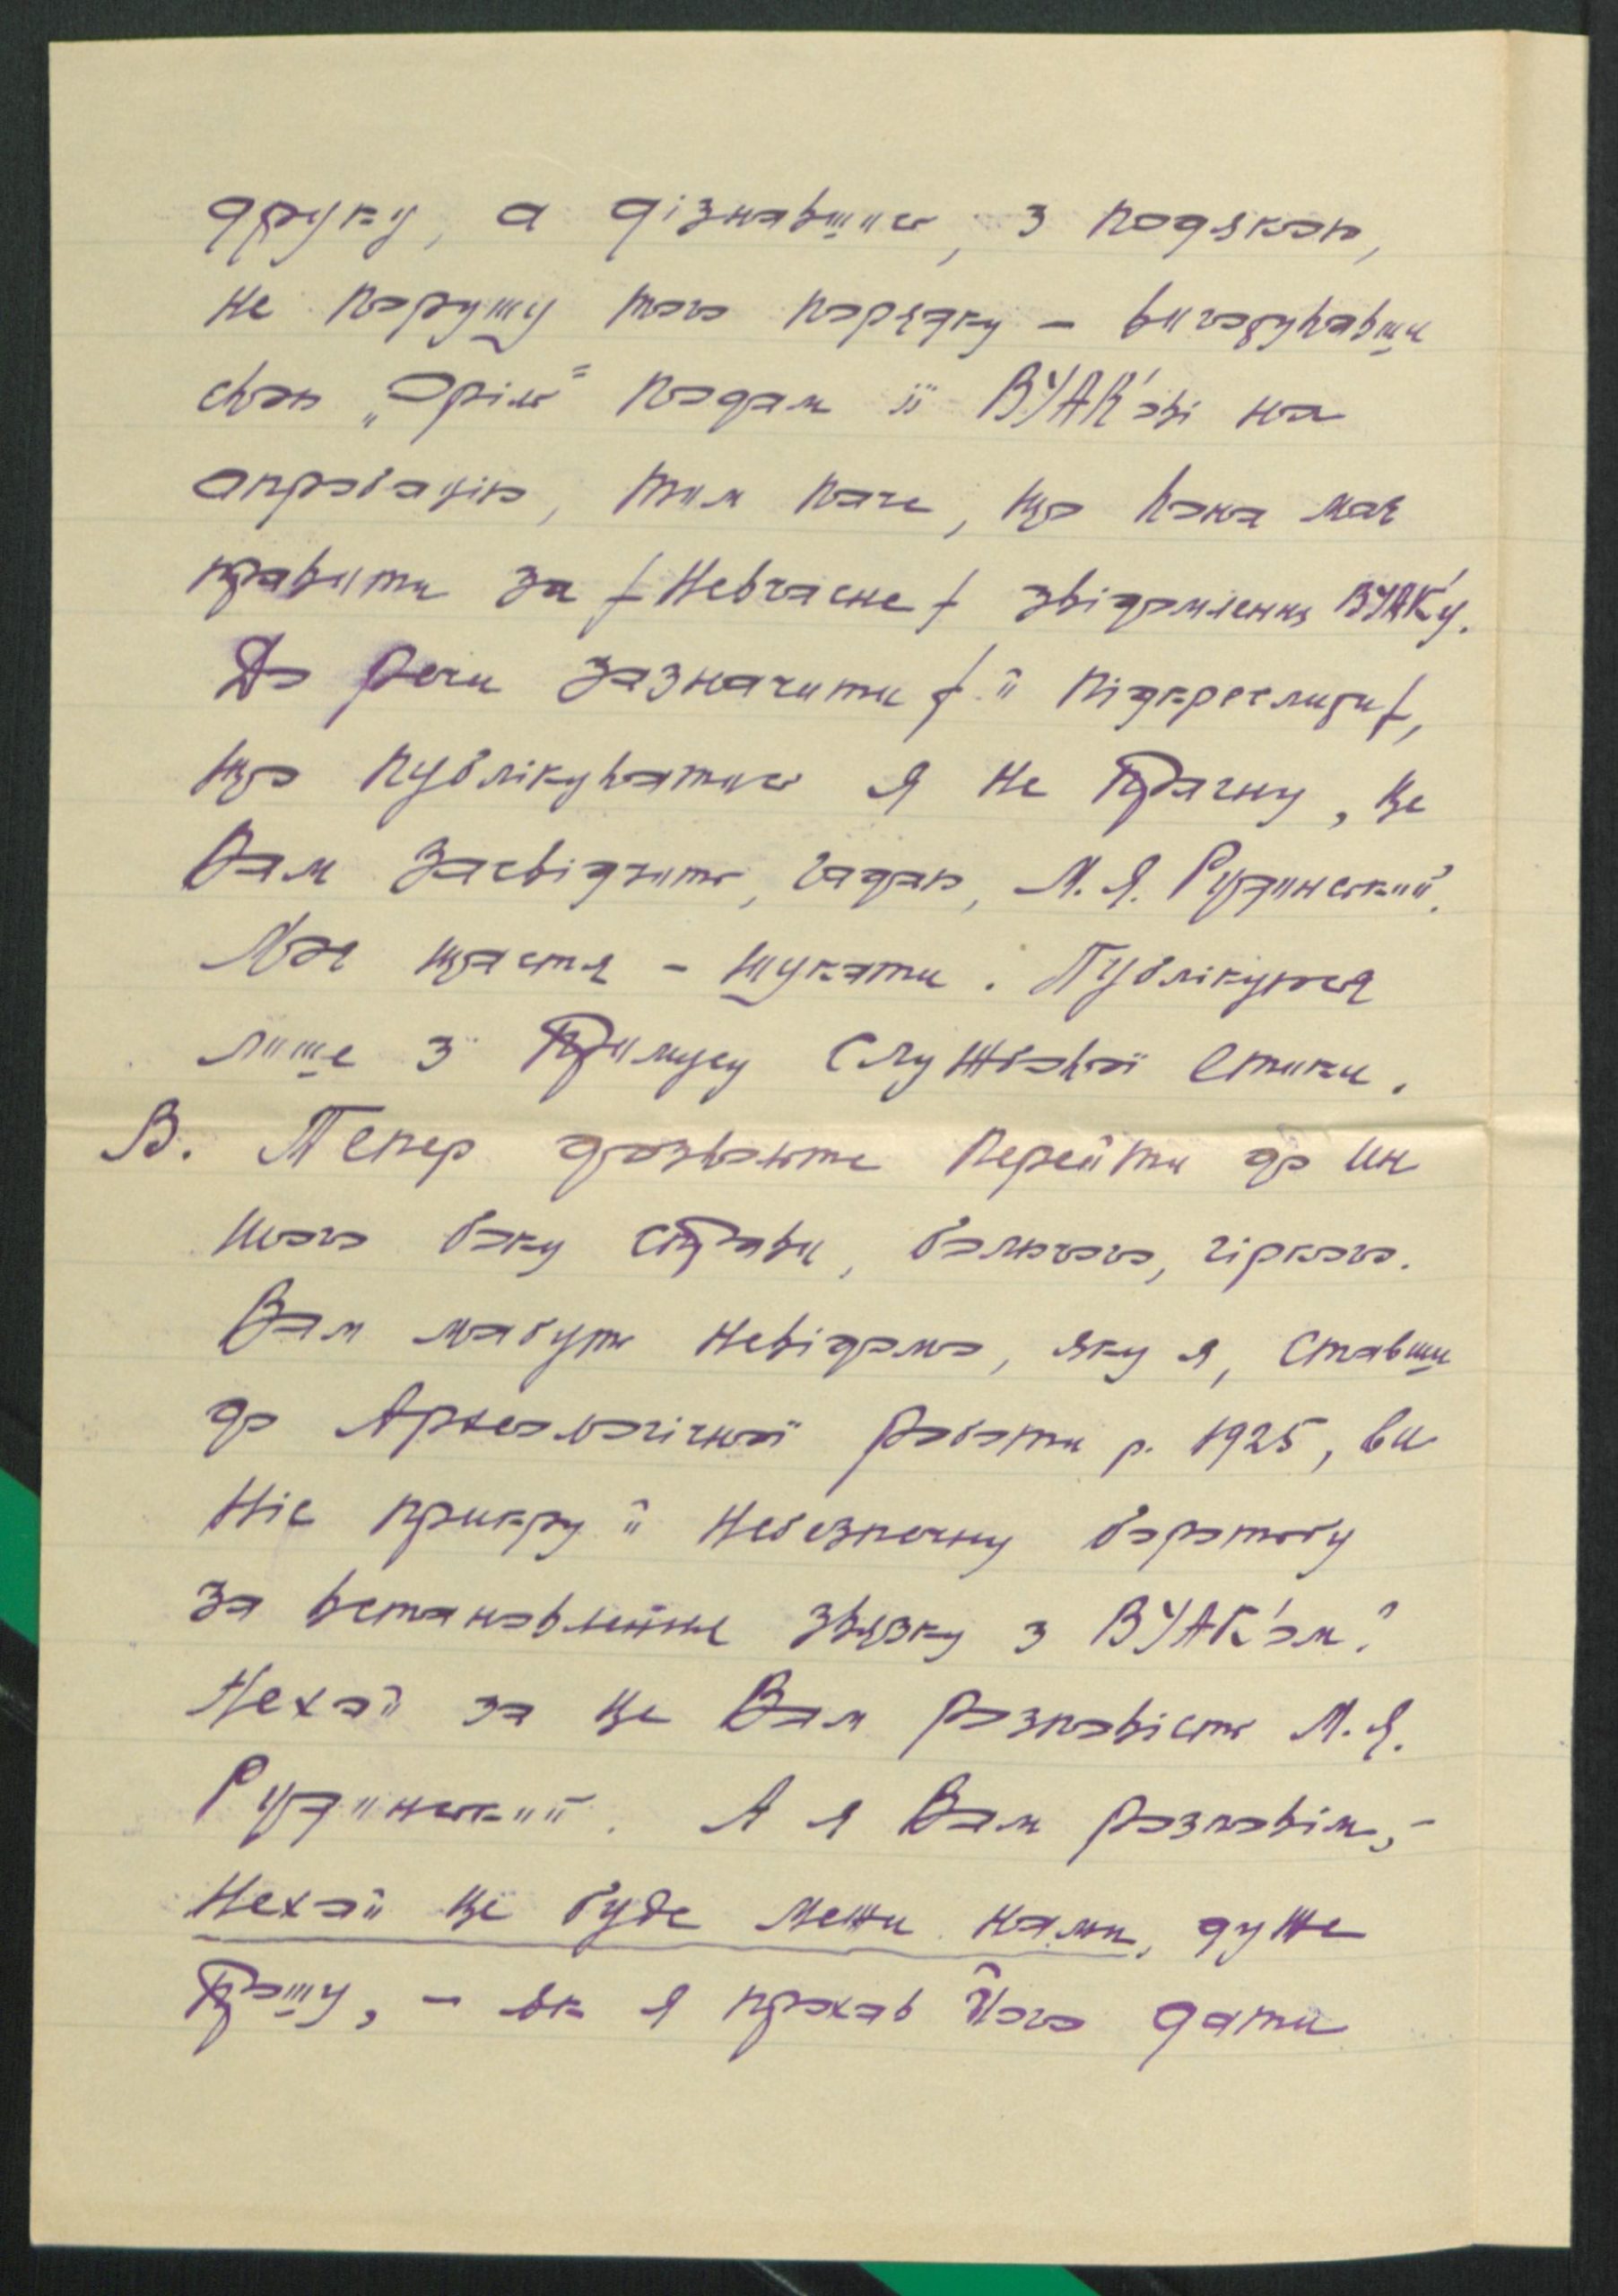 друку, а дізнавшись, з подякою,
не порушу того порядку – виготувавши
свою „Оріль" подам її ВУАК'ові на
апробацію, тим паче, що вона має
правити за / невчасне / звідомлення ВУАК'у.
До речи зазначити / й підкреслити /,
що публікуватись я не прагну, це
Вам засвідчить, гадаю, М. Я. Рудинський.
Моє щастя – шукати. Публікуюся
лише з примусу службової етики.
В. Тепер дозвольте перейти до ин
шого боку справи, болючого, гіркого.
Вам мабуть невідомо, яку я, ставши
до Археологічної роботи р. 1925, ви
ніс прикру й небезпечну боротьбу
за встановлення звязку з ВУАК'ом?
Нехай за це Вам розповість М. Я.
Рудинський. А я Вам розповім, –
нехай це буде межи нами, дуже
прошу, – як я прохав його дати